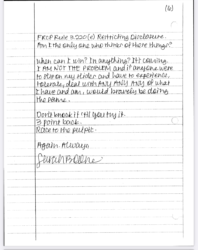 (6)
FRCP Rule 3.220(e) Restricting Disclosure.
Am I the only one who thinks of these things?
When can I win? In anything? It's craving.
I AM NOT THE PROBLEM and if anyone were
to be on my slider and have to experience,
tolerate, deal with ANY ANY ANY of what
I have and am, would bravely be doing
the same.
Don't knock it 'til you try it.
3 point hook.
Race to the pulpit.
Again Always
Sarah Boone